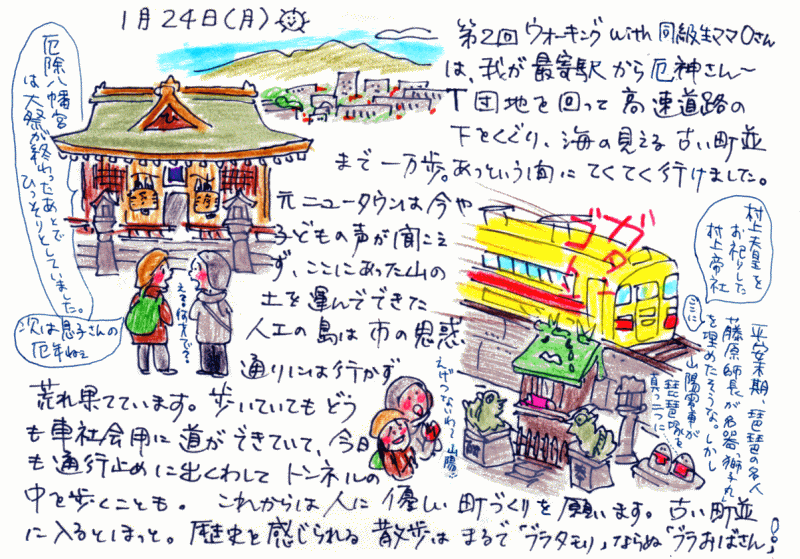 1月24日(月)
第2回ウォーキングwith同級生ママOさん
は、我が最寄駅から厄神さん〜
T団地を回って高速道路の
下をくぐり、海の見える古い町並
まで一万歩。あっという間にてくてく行けました。
元ニュータウンは今や
子どもの声が聞こえ
ず、ここにあった山の
土を運んでできた
人工の島は市の思惑
通りには行かず
荒れ果てています。歩いていてもどう
も車社会用に道ができていて、今日
も通行止めに出くわしてトンネルの
中を歩くことも。これからは人に優しい町づくりを願います。古い町並
に入るとほっと。歴史を感じられる散歩はまるで「ブラタモリ」ならぬ「ブラおばさん」!
厄除八幡宮
は大祭が終わったあとで
ひっそりとしていました。
次は息子さんの
厄年ねぇ
え?何才で?
村上天皇を
お祀りした
村上帝社
ここに
平安末期、琵琶の名人
藤原師長が名器獅子丸
を埋めたそうな。しかし
山陽電車が
琵琶塚を
真っ二つに
えげつないわ〜山陽!!